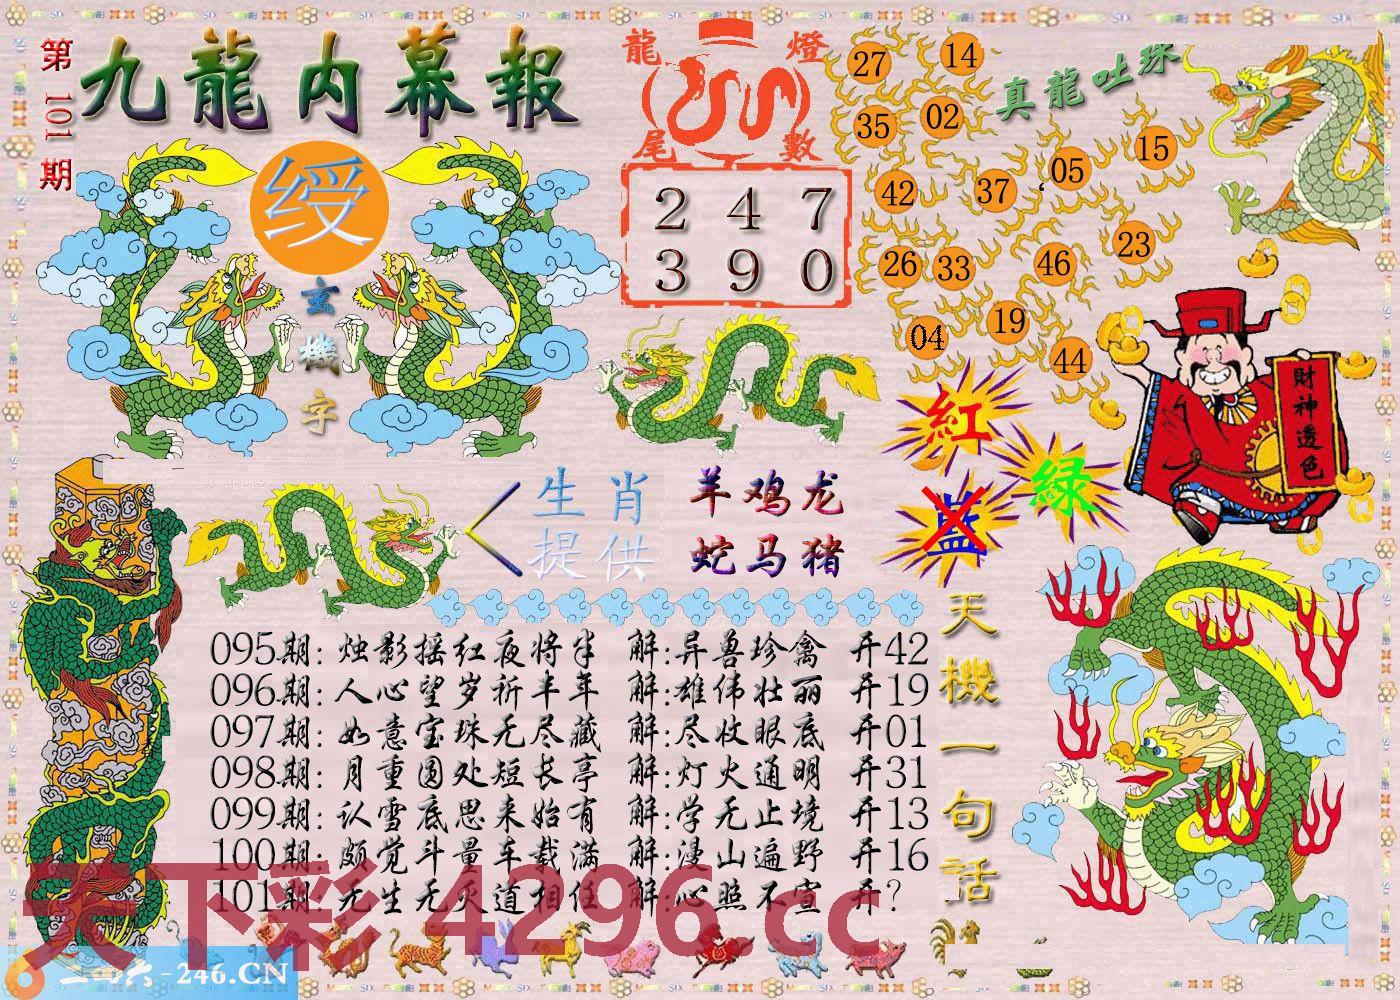 第101期
九龍内幕報
绶
玄機字
龍燈
尾數
2 4 7
3 9 0
真龍吐珠
27 14
35 02
42 37 05 15
26 33 46 23
04 19 44
財神透色
紅
綠
藍
生肖 羊鸡龙
提供 蛇马猪
095期: 烛影摇红夜将半 解:异兽珍禽 开42
096期: 人心望岁祈半年 解:雄伟壮丽 开19
097期: 如意宝珠无尽藏 解:尽收眼底 开01
098期: 月重圆处短长亭 解:灯火通明 开31
099期: 认雪底思来始有 解:学无止境 开13
100期: 颇觉斗量车载满 解:漫山遍野 开16
101期: 无生无灭道相住 解:心照不宣 开?
天機一句话
天下彩 4296.cc
二四六-246.CN